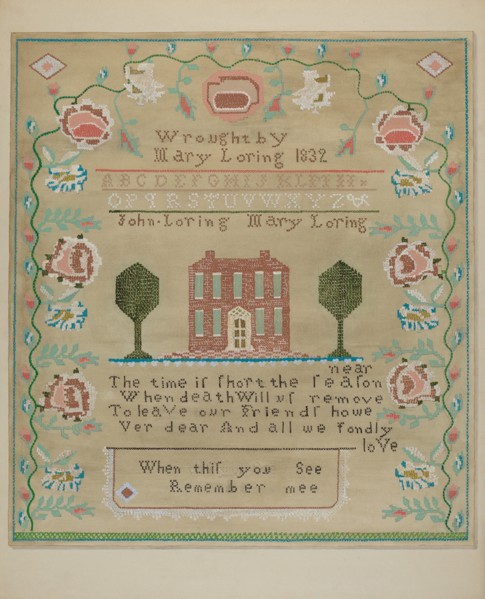 Wrought by
Mary Loring 1832
A B C D E F G H I J K L M N
O P Q R S T U V W X Y Z &
John · Loring Mary Loring
near
The time iſ ſhort the ſeaſon
When death Will uſ remove
To leaVe our Friendſ howe
Ver dear And all we fondly
loVe
When thiſ you See
Remember mee